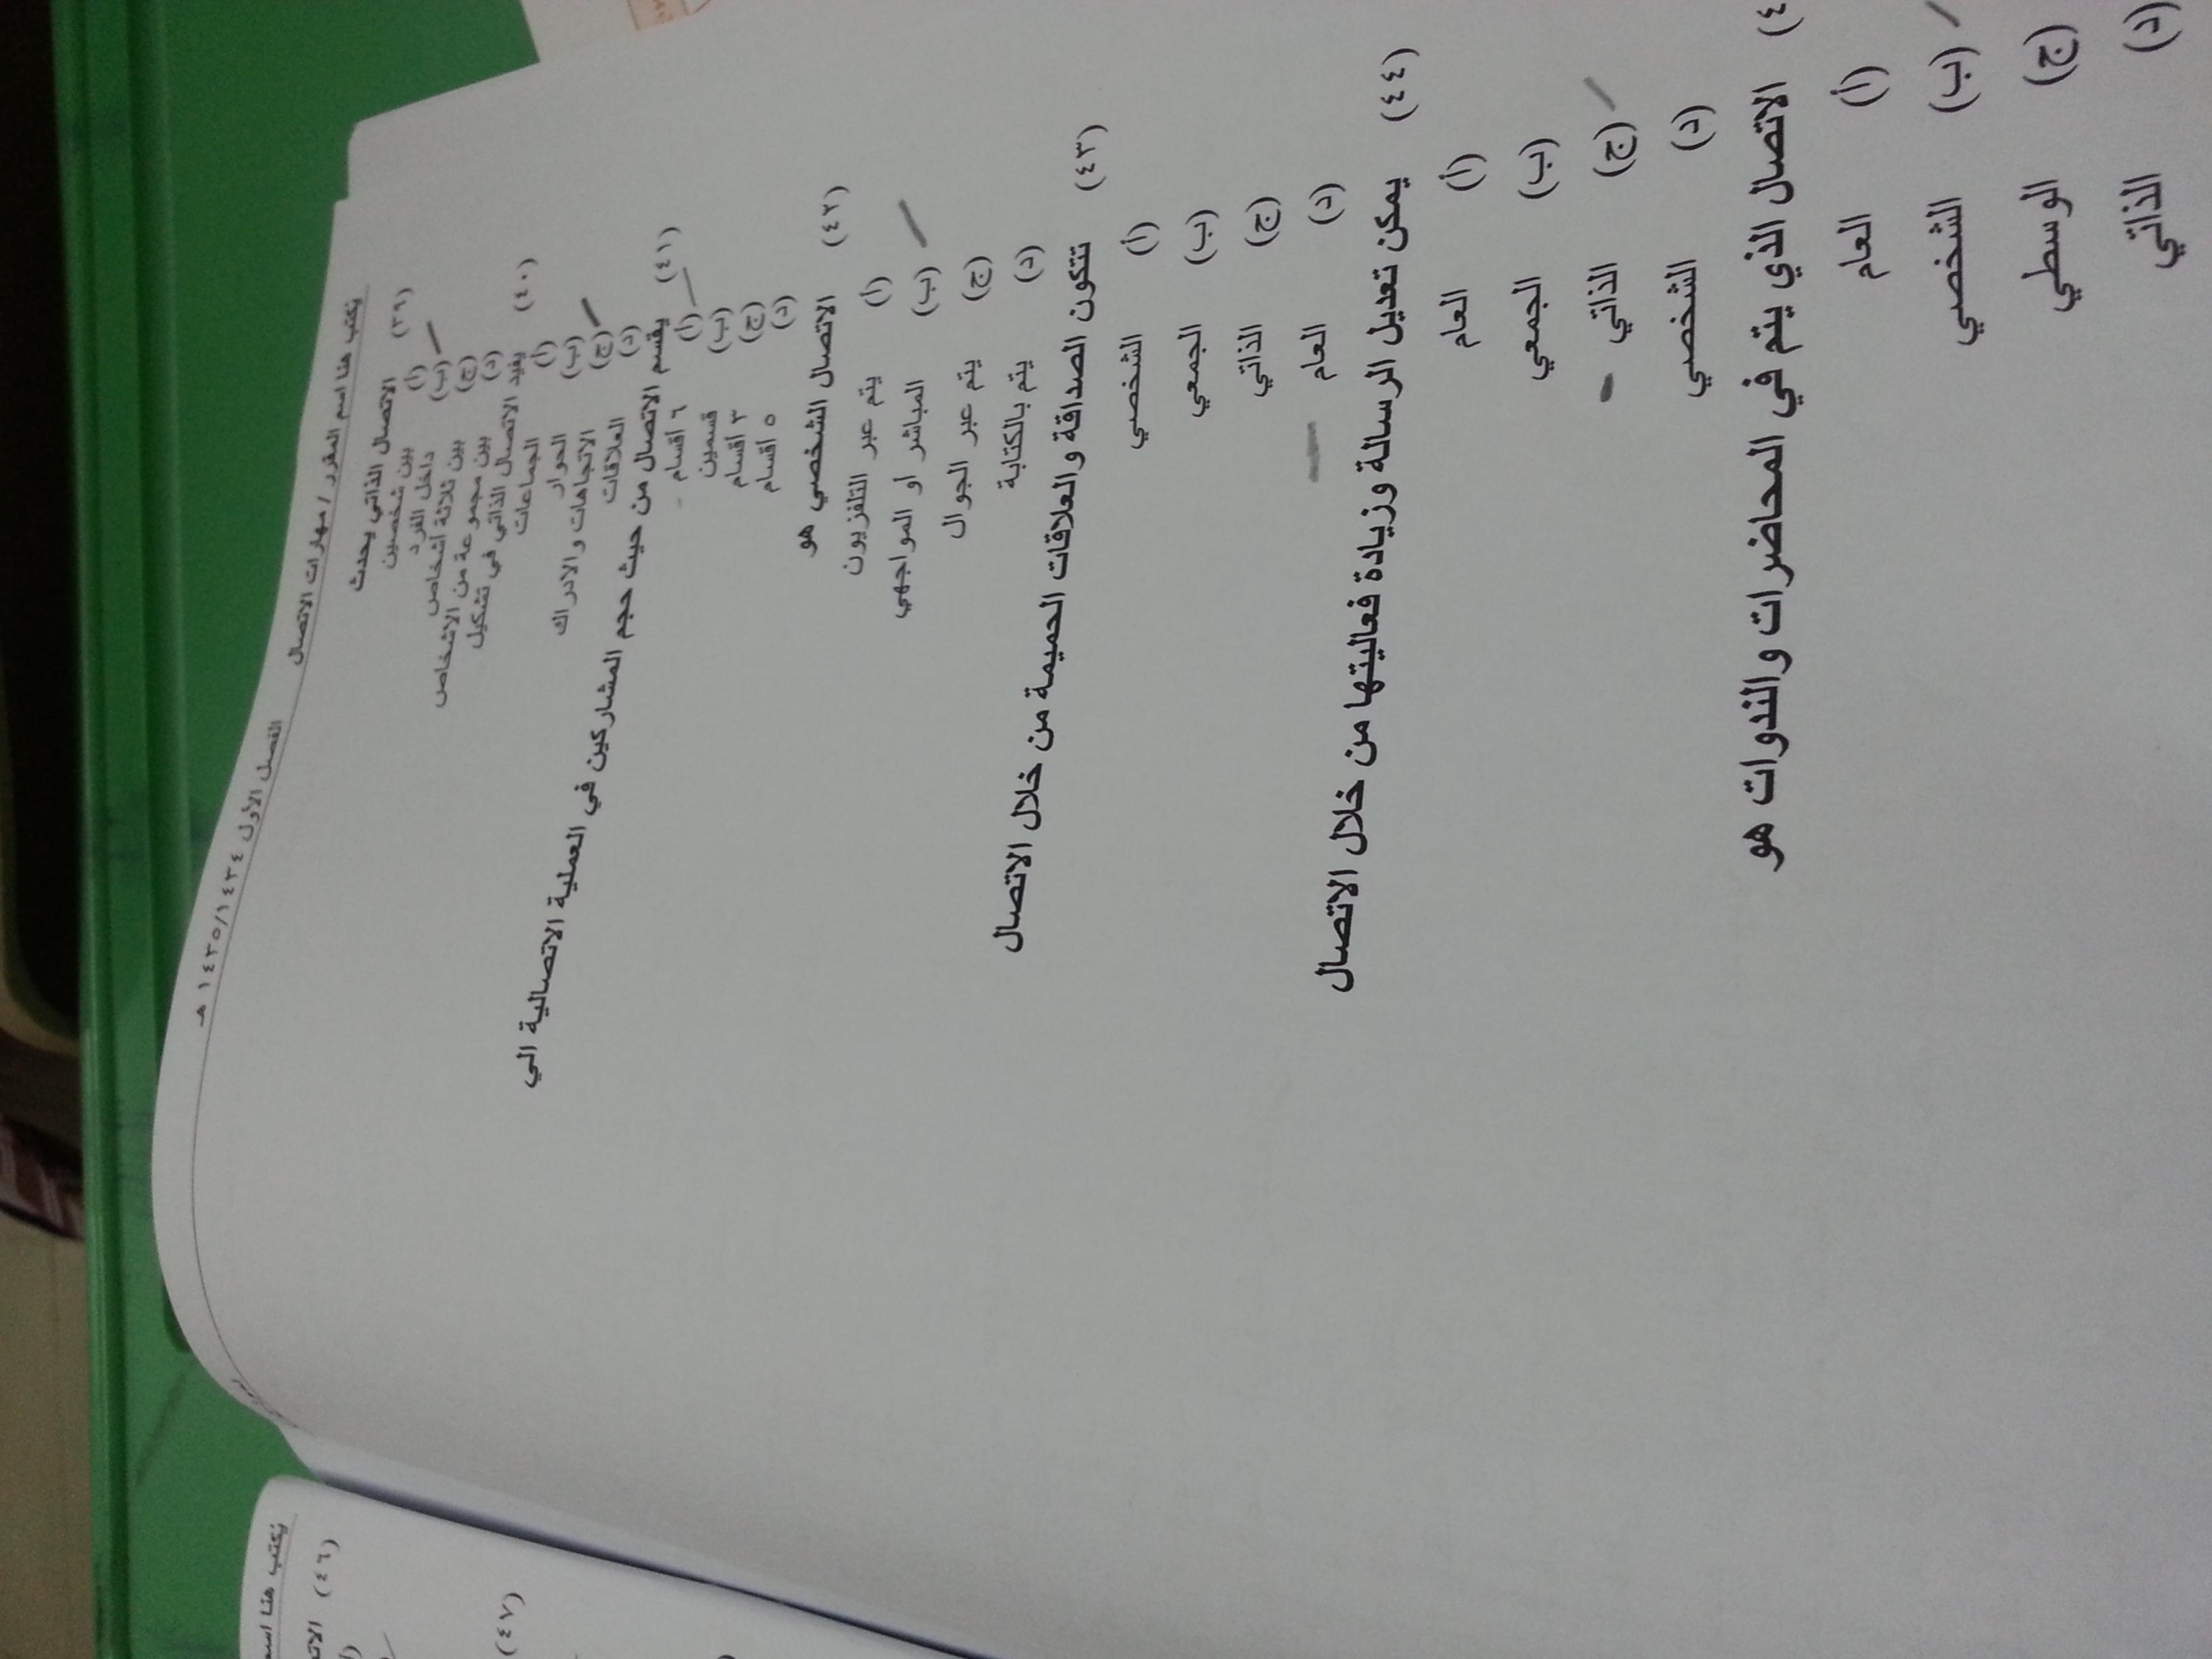 يكتب هنا اسم المقرر / مهارات الاتصال الفصل الأول ١٤٣٤/١٤٣٥ هـ
(٣٩) الاتصال الذاتي يحدث
(أ) بين شخصين
(ب) داخل الفرد
(ج) بين ثلاثة أشخاص
(د) بين مجموعة من الاشخاص
(٤٠) يفيد الاتصال الذاتي في تشكيل
(أ) الجماعات
(ب) الحوار
(ج) الاتجاهات والادراك
(د) العلاقات
(٤١) يقسم الاتصال من حيث حجم المشاركين في العملية الاتصالية الي
(أ) ٦ أقسام
(ب) قسمين
(ج) ٣ أقسام
(د) ٥ أقسام
(٤٢) الاتصال الشخصي هو
(أ) يتم عبر التلفزيون
(ب) المباشر أو المواجهي
(ج) يتم عبر الجوال
(د) يتم بالكتابة
(٤٣) تتكون الصداقة والعلاقات الحميمة من خلال الاتصال
(أ) الشخصي
(ب) الجمعي
(ج) الذاتي
(د) العام
(٤٤) يمكن تعديل الرسالة وزيادة فعاليتها من خلال الاتصال
(أ) العام
(ب) الجمعي
(ج) الذاتي
(د) الشخصي
الاتصال الذي يتم في المحاضرات والندوات هو
(أ) العام
(ب) الشخصي
(ج) الوسطي
(د) الذاتي
يكتب هنا اسم
(٤٦)
(٤٧)